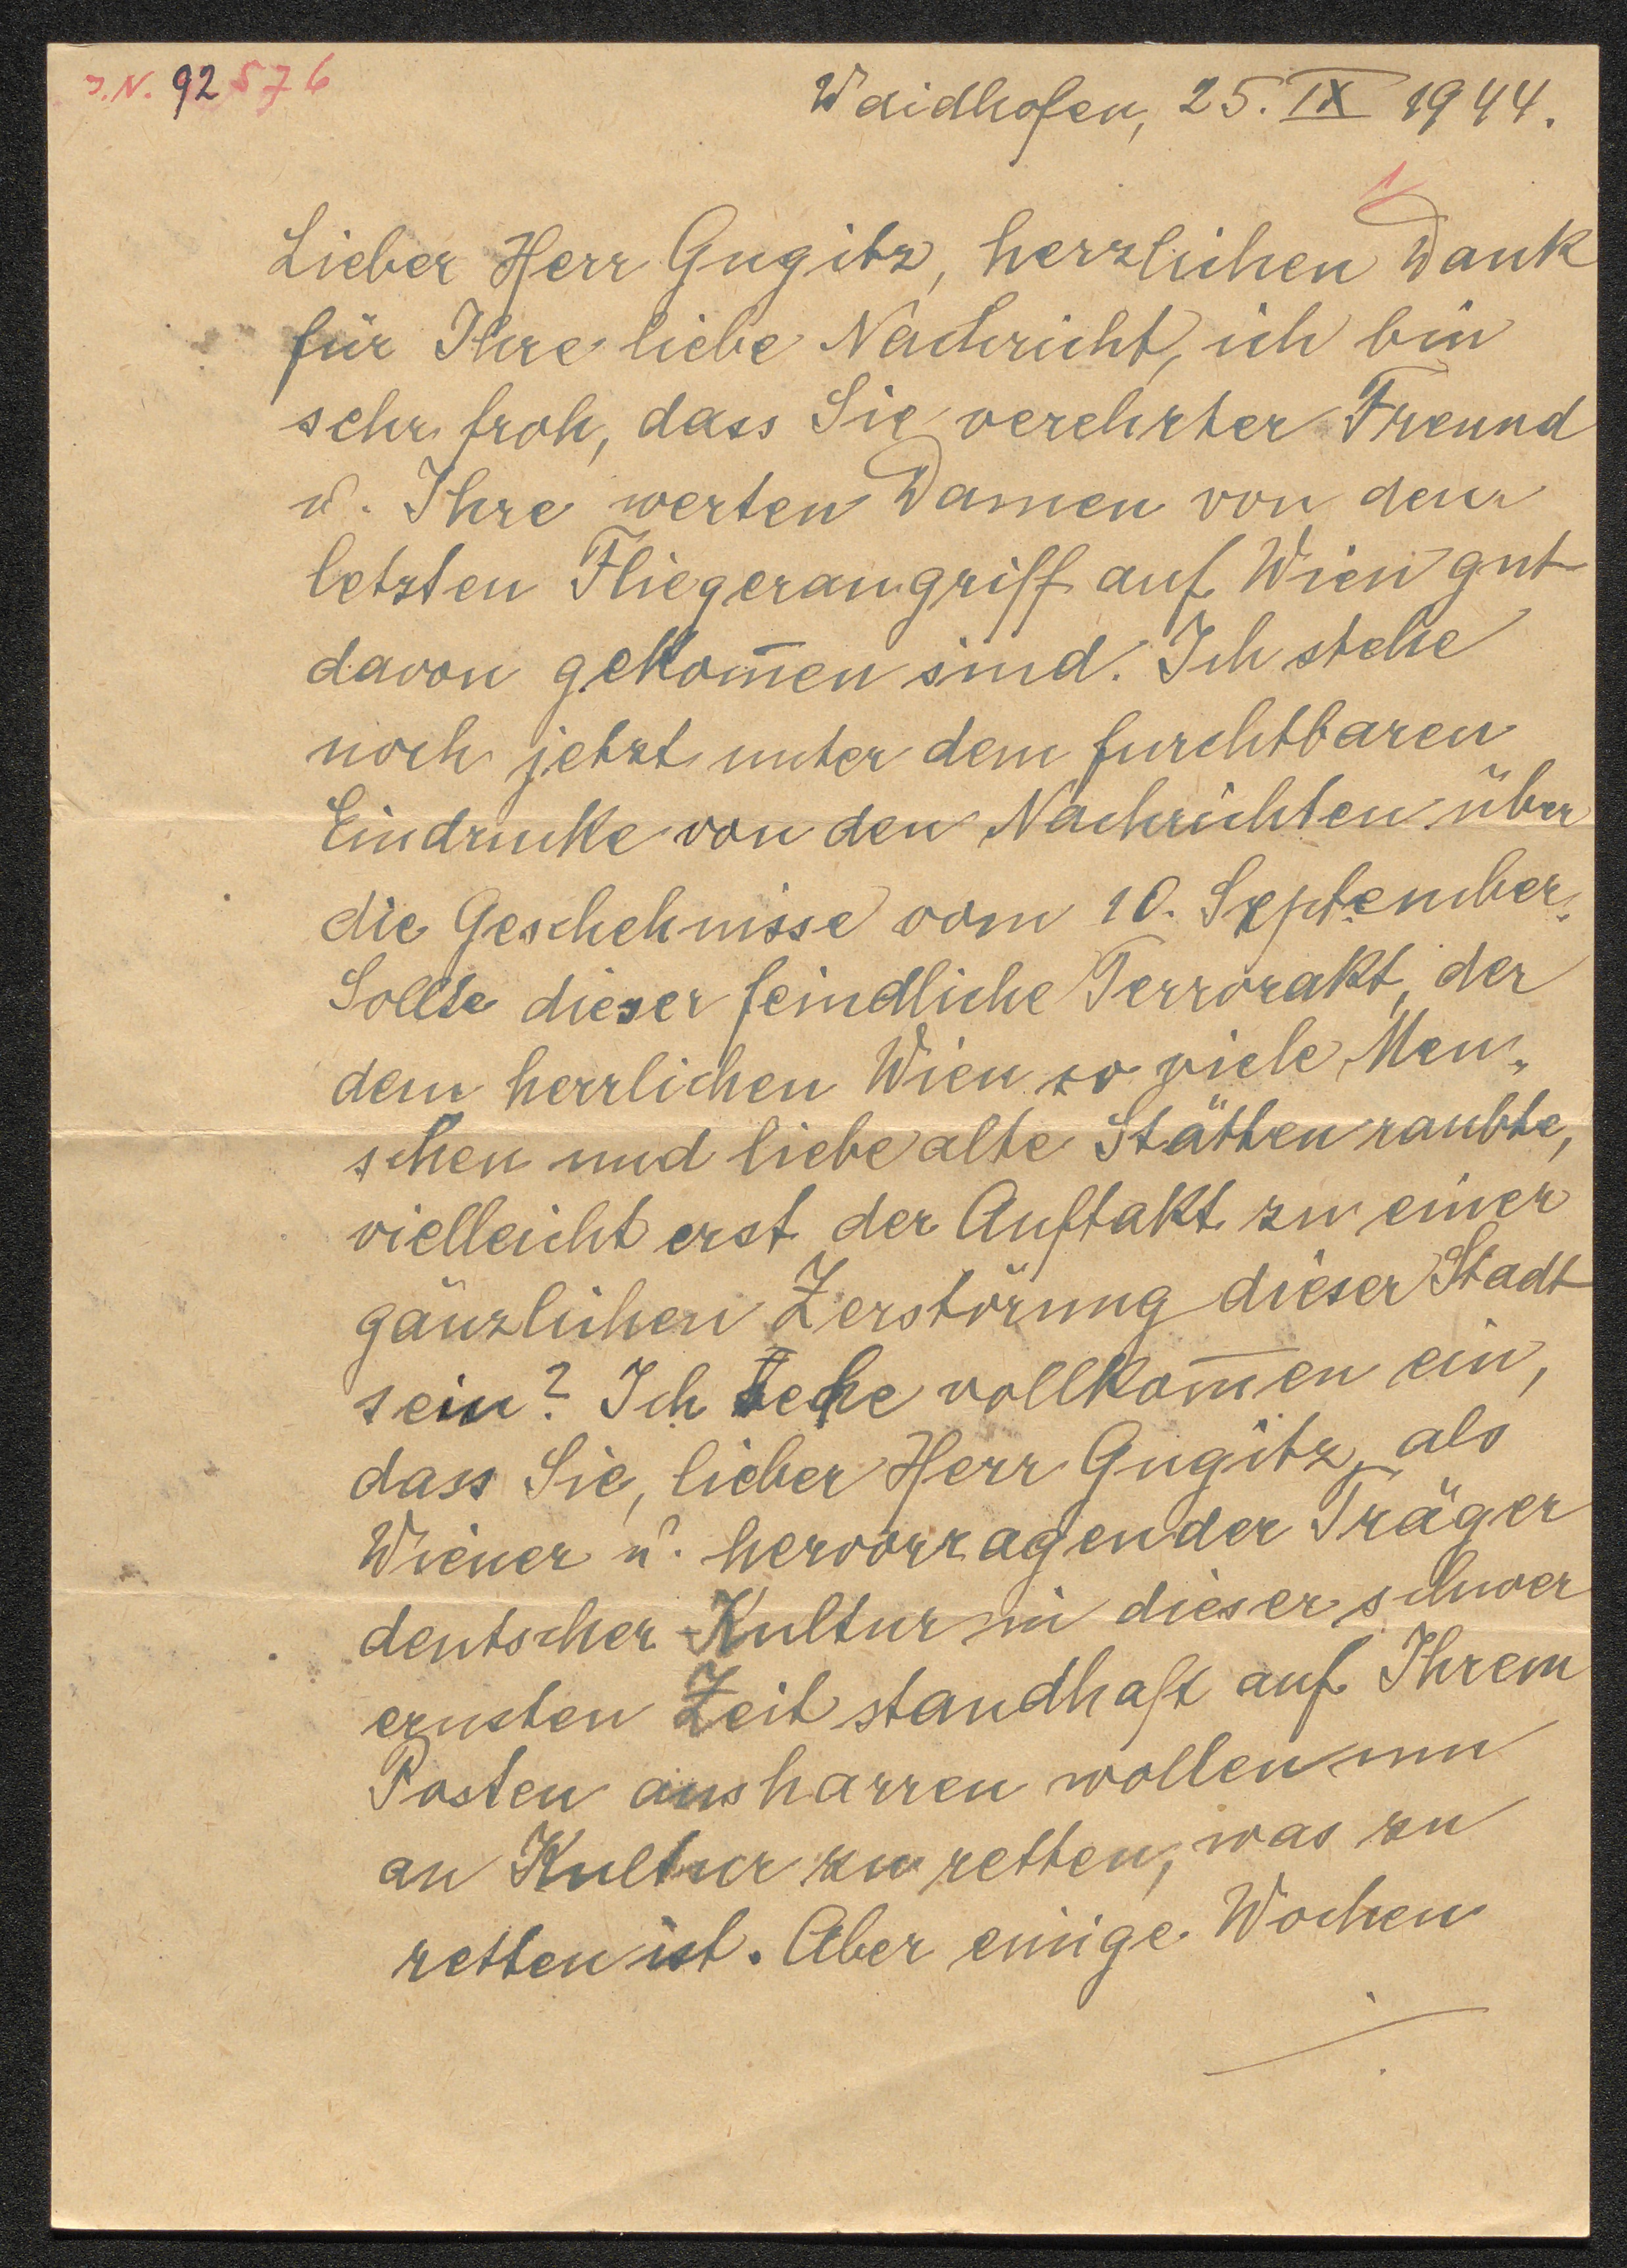 J.N. 92576
Waidhofen, 25. IX 1944.
Lieber Herr Gugitz, herzlichen Dank
für Ihre liebe Nachricht, ich bin
sehr froh, dass Sie verehrter Freund
u. Ihre werten Damen von dem
letzten Fliegerangriff auf Wien gut
davon gekom̅en sind. Ich stehe
noch jetzt unter dem furchtbaren
Eindrucke von den Nachrichten über
die Geschehnisse vom 10. September.
Sollte dieser feindliche Terrorakt, der
dem herrlichen Wien so viele Men„
schen und liebe alte Stätten raubte,
vielleicht erst der Auftakt zu einer
gänzlichen Zerstörung dieser Stadt
sein? Ich sehe vollkom̅en ein,
dass Sie, lieber Herr Gugitz, als
Wiener u. hervorragender Träger
deutscher Kultur in dieser schwer
ernsten Zeit standhaft auf Ihrem
Posten ausharren wollen um
an Kultur zu retten, was zu
retten ist. Aber einige Wochen